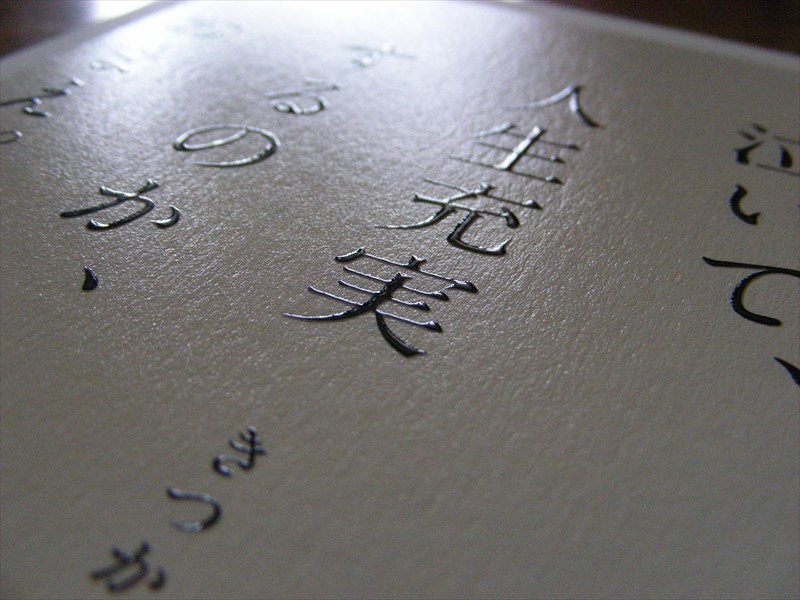 泣いて、
人生充実
きっか
するのか、